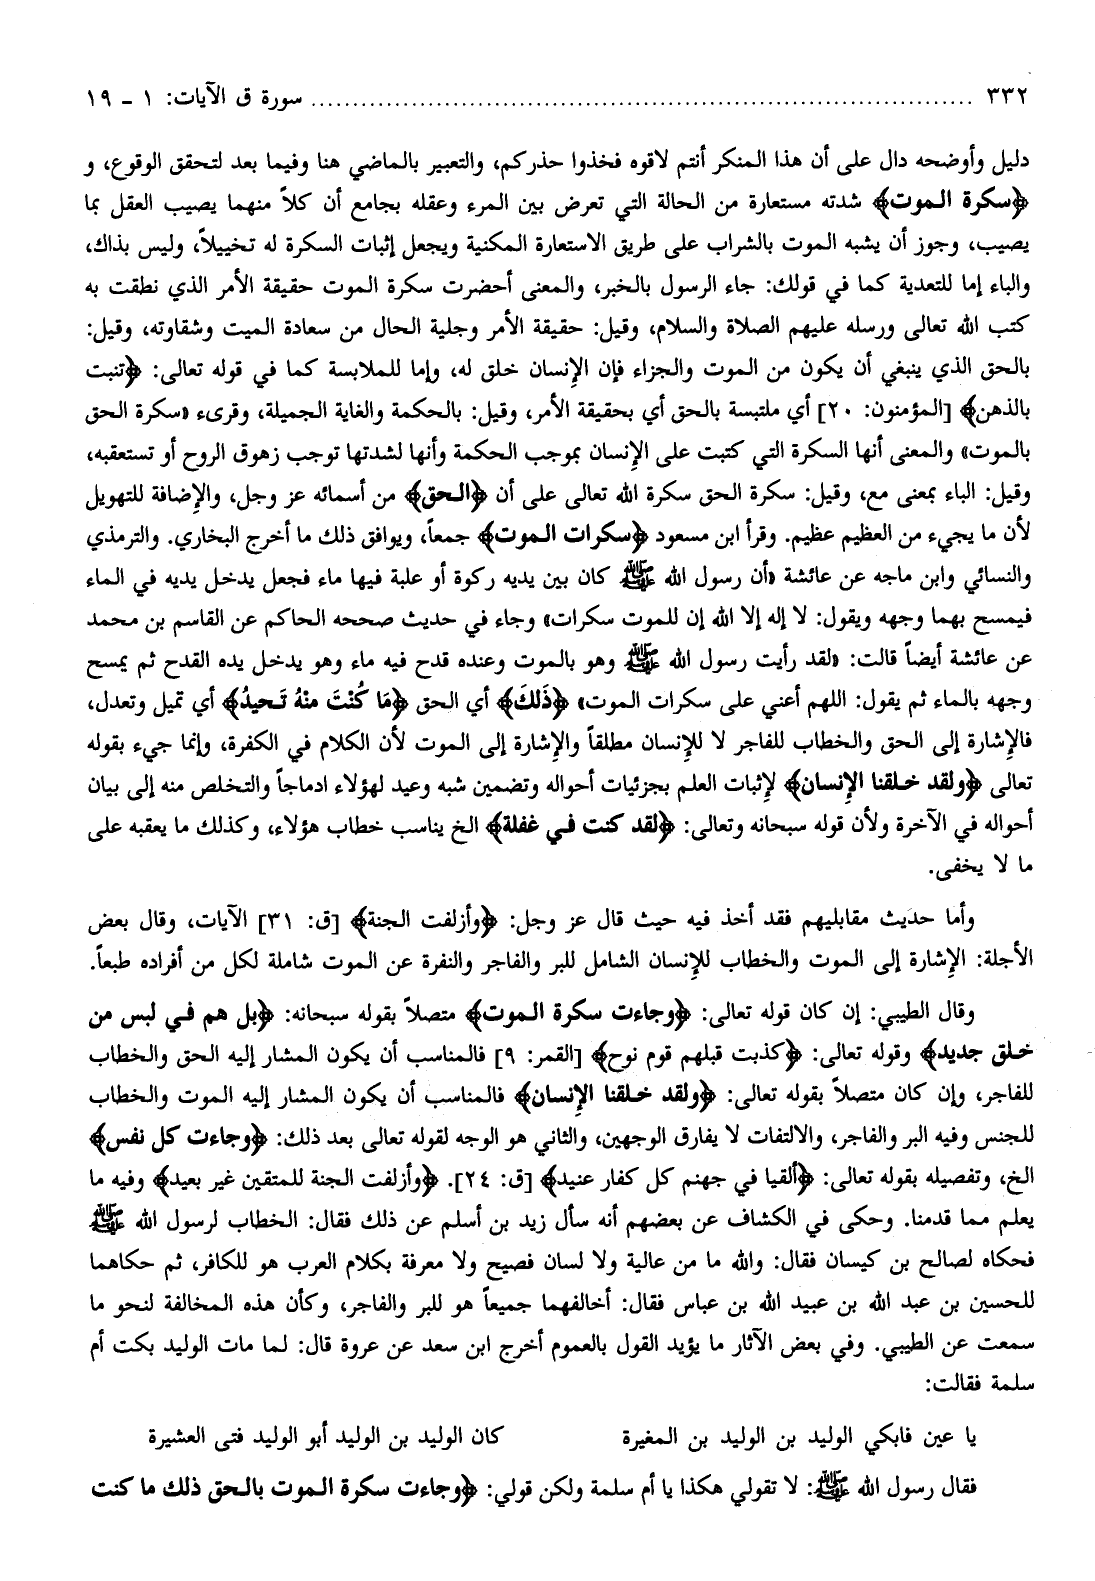 ٣٣٢ ........................................ سورة ق الآيات: ١ - ١٩
دليل وأوضحه دال على أن هذا المنكر أنتم لاقوه فخذوا حذركم، والتعبير بالماضي هنا وفيما بعد لتحقق الوقوع، و
﴿سكرة الموت﴾ شدته مستعارة من الحالة التي تعرض بين المرء وعقله بجامع أن كلاً منهما يصيب العقل بما
يصيب، وجوز أن يشبه الموت بالشراب على طريق الاستعارة المكنية ويجعل إثبات السكرة له تخييلاً، وليس بذاك،
والباء إما للتعدية كما في قولك: جاء الرسول بالخبر، والمعنى أحضرت سكرة الموت حقيقة الأمر الذي نطقت به
كتب الله تعالى ورسله عليهم الصلاة والسلام، وقيل: حقيقة الأمر وجلية الحال من سعادة الميت وشقاوته، وقيل:
بالحق الذي ينبغي أن يكون من الموت والجزاء فإن الإنسان خلق له، وإما للملابسة كما في قوله تعالى: ﴿تنبت
بالذهن﴾ [المؤمنون: ٢٠] أي ملتبسة بالحق أي بحقيقة الأمر، وقيل: بالحكمة والغاية الجميلة، وقرىء «سكرة الحق
بالموت» والمعنى أنها السكرة التي كتبت على الإنسان بموجب الحكمة وأنها لشدتها توجب زهوق الروح أو تستعقبه،
وقيل: الباء بمعنى مع، وقيل: سكرة الحق سكرة الله تعالى على أن ﴿الحق﴾ من أسمائه عز وجل، والإضافة للتهويل
لأن ما يجيء من العظيم عظيم. وقرأ ابن مسعود ﴿سكرات الموت﴾ جمعاً، ويوافق ذلك ما أخرج البخاري. والترمذي
والنسائي وابن ماجه عن عائشة «أن رسول الله ﷺ كان بين يديه ركوة أو علبة فيها ماء فجعل يدخل يديه في الماء
فيمسح بهما وجهه ويقول: لا إله إلا الله إن للموت سكرات» وجاء في حديث صححه الحاكم عن القاسم بن محمد
عن عائشة أيضاً قالت: «لقد رأيت رسول الله ﷺ وهو بالموت وعنده قدح فيه ماء وهو يدخل يده القدح ثم يمسح
وجهه بالماء ثم يقول: اللهم أعني على سكرات الموت» ﴿ذَلكَ﴾ أي الحق ﴿مَا كُنْتَ منْهُ تَحيدُ﴾ أي تميل وتعدل،
فالإشارة إلى الحق والخطاب للفاجر لا للإنسان مطلقاً والإشارة إلى الموت لأن الكلام في الكفرة، وإنما جيء بقوله
تعالى ﴿ولقد خلقنا الإنسان﴾ لإثبات العلم بجزئيات أحواله وتضمين شبه وعيد لهؤلاء ادماجاً والتخلص منه إلى بيان
أحواله في الآخرة ولأن قوله سبحانه وتعالى: ﴿لقد كنت في غفلة﴾ الخ يناسب خطاب هؤلاء، وكذلك ما يعقبه على
ما لا يخفى.
وأما حديث مقابليهم فقد أخذ فيه حيث قال عز وجل: ﴿وأزلفت الجنة﴾ [ق: ٣١] الآيات، وقال بعض
الأجلة: الإشارة إلى الموت والخطاب للإنسان الشامل للبر والفاجر والنفرة عن الموت شاملة لكل من أفراده طبعاً.
وقال الطيبي: إن كان قوله تعالى: ﴿وجاءت سكرة الموت﴾ متصلاً بقوله سبحانه: ﴿بل هم في لبس من
خلق جديد﴾ وقوله تعالى: ﴿كذبت قبلهم قوم نوح﴾ [القمر: ٩] فالمناسب أن يكون المشار إليه الحق والخطاب
للفاجر، وإن كان متصلاً بقوله تعالى: ﴿ولقد خلقنا الإنسان﴾ فالمناسب أن يكون المشار إليه الموت والخطاب
للجنس وفيه البر والفاجر، والالتفات لا يفارق الوجهين، والثاني هو الوجه لقوله تعالى بعد ذلك: ﴿وجاءت كل نفس﴾
الخ، وتفصيله بقوله تعالى: ﴿ألقيا في جهنم كل كفار عنيد﴾ [ق: ٢٤]. ﴿وأزلفت الجنة للمتقين غير بعيد﴾ وفيه ما
يعلم مما قدمنا. وحكى في الكشاف عن بعضهم أنه سأل زيد بن أسلم عن ذلك فقال: الخطاب لرسول الله ﷺ
فحكاه لصالح بن كيسان فقال: والله ما من عالية ولا لسان فصيح ولا معرفة بكلام العرب هو للكافر، ثم حكاهما
للحسين بن عبد الله بن عبيد الله بن عباس فقال: أخالفهما جميعاً هو للبر والفاجر، وكأن هذه المخالفة لنحو ما
سمعت عن الطيبي. وفي بعض الآثار ما يؤيد القول بالعموم أخرج ابن سعد عن عروة قال: لما مات الوليد بكت أم
سلمة فقالت:
يا عين فابكي الوليد بن الوليد بن المغيرة كان الوليد بن الوليد أبو الوليد فتى العشيرة
فقال رسول الله ﷺ: لا تقولي هكذا يا أم سلمة ولكن قولي: ﴿وجاءت سكرة الموت بالحق ذلك ما كنت